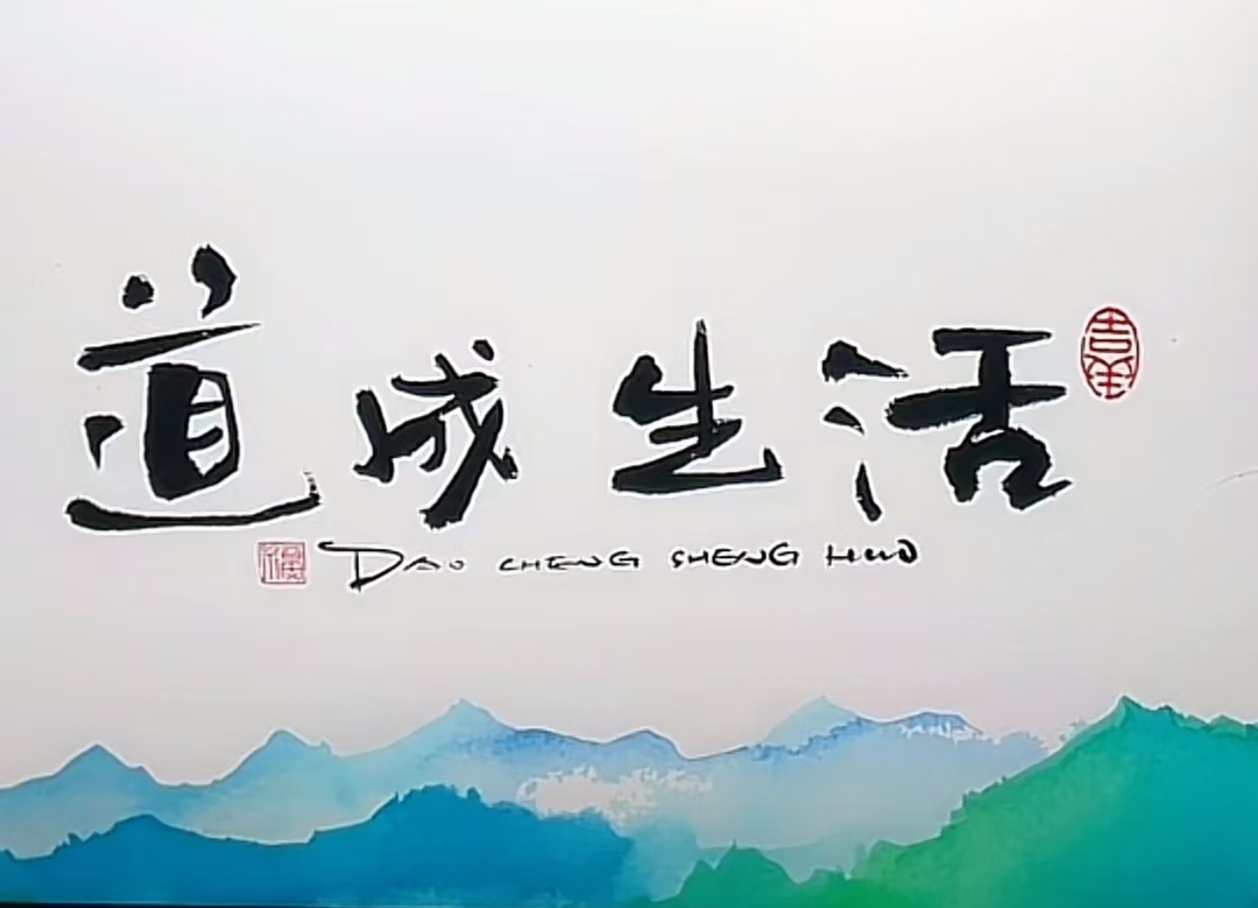 道成生活
DAO CHENG SHENG HUO